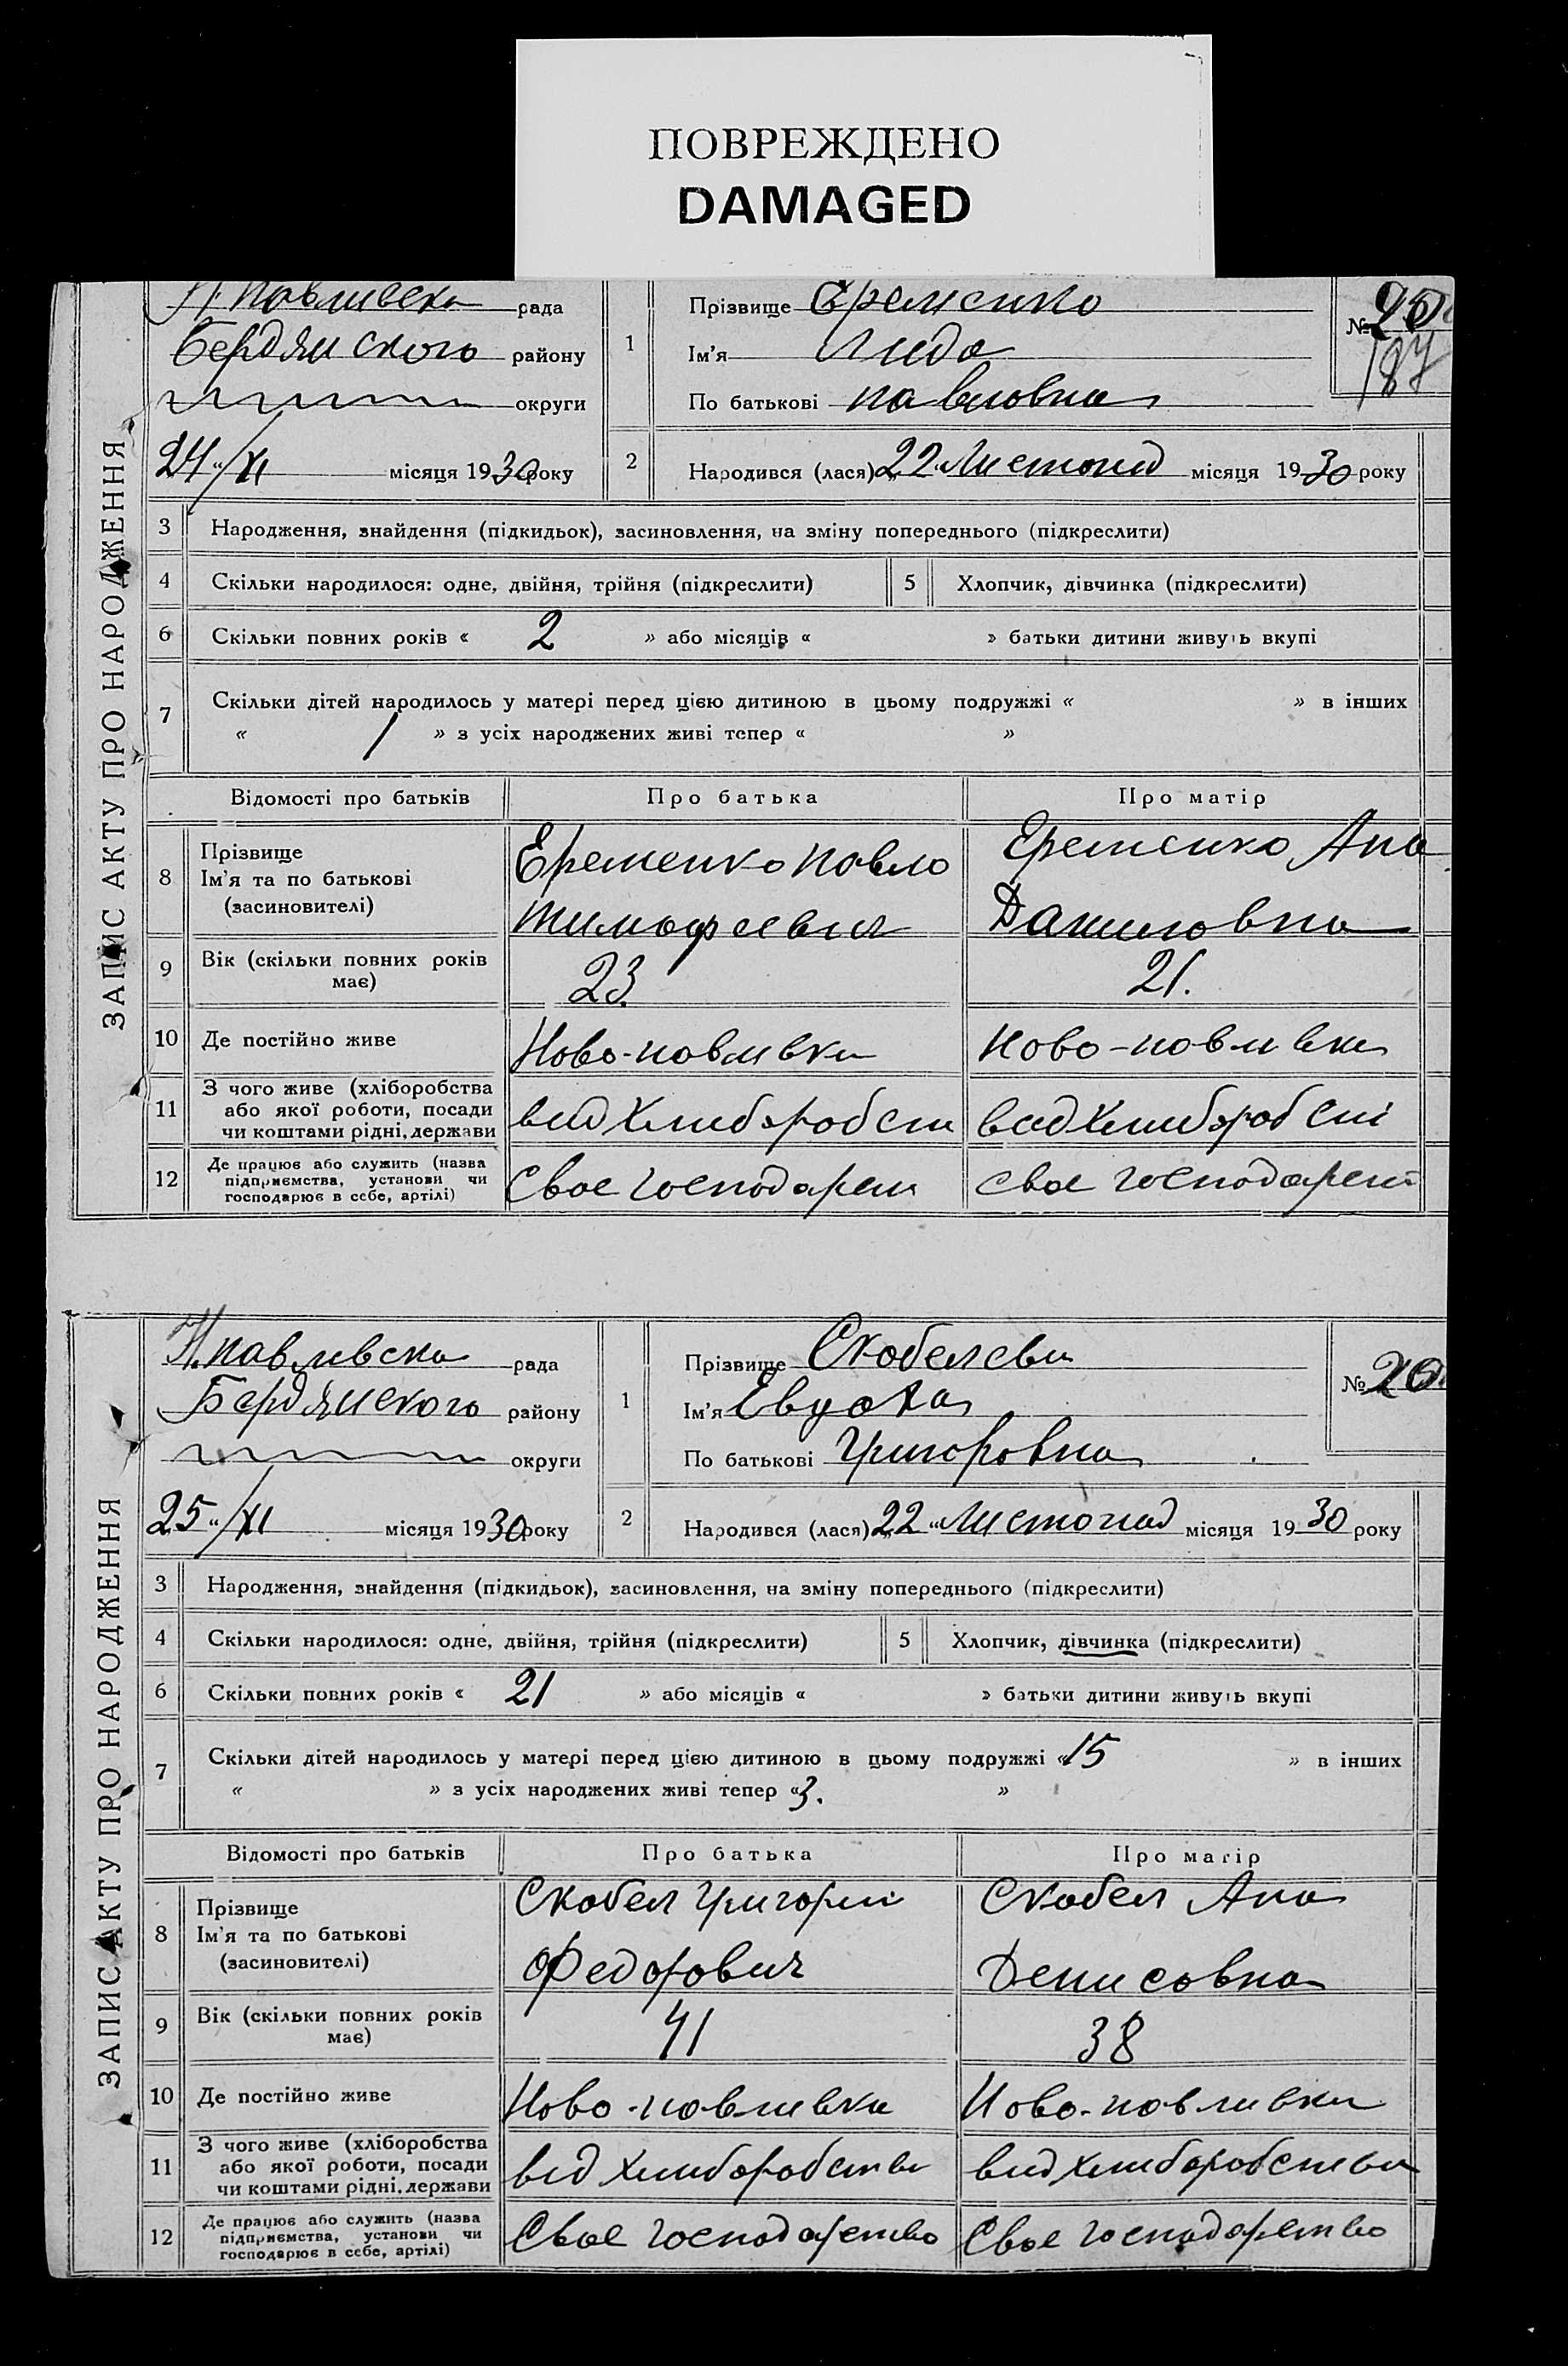 ПОВРЕЖДЕНО
DAMAGED
ЗАПИС АКТУ ПРО НАРОДЖЕННЯ
Н. Павливска рада
Бердянского району
округи
24 "/XI місяця 1930 року
1
Прізвище Еременко
Ім'я Лида
По батькові Павловна
№
187
2 Народився (лася) 22 Листопад місяця 1930 року
3 Народження, знайдення (підкидьок), засиновлення, на зміну попереднього (підкреслити)
4 Скільки народилося: одне, двійня, трійня (підкреслити) 5 Хлопчик, дівчинка (підкреслити)
6 Скільки повних років « 2 » або місяців « » батьки дитини живуть вкупі
7 Скільки дітей народилось у матері перед цією дитиною в цьому подружжі « » в інших
« 1 » з усіх народжених живі тепер « »
Відомості про батьків Про батька Про матір
8 Прізвище
Ім'я та по батькові
(засиновителі)
Еременко Павло
Тимофеевич
Еременко Ана
Даниловна
9 Вік (скільки повних років
має)
23. 21.
10 Де постійно живе Ново-павливка Ново-павливка
11 З чого живе (хліборобства
або якої роботи, посади
чи коштами рідні, держави
вид Хлиборобст видХлиборобст
12 Де працює або служить (назва
підприємства, установи чи
господарює в себе, артілі)
Свое господарст свое господарст
ЗАПИС АКТУ ПРО НАРОДЖЕННЯ
Н. павливска рада
Бердянского району
округи
25 "/XI місяця 1930 року
1
Прізвище Скобелева
Ім'я
По батькові Григоровна
№ 20
2 Народився (лася) 22 "Листопад місяця 1930 року
3 Народження, знайдення (підкидьок), засиновлення, на зміну попереднього (підкреслити)
4 Скільки народилося: одне, двійня, трійня (підкреслити) 5 Хлопчик, дівчинка (підкреслити)
6 Скільки повних років « 21 » або місяців « » батьки дитини живуть вкупі
7 Скільки дітей народилось у матері перед цією дитиною в цьому подружжі « 15 » в інших
« » з усіх народжених живі тепер « 3. »
Відомості про батьків Про батька Про матір
8 Прізвище
Ім'я та по батькові
(засиновителі)
Скобел Григорий
Федорович
Скобел Ана
Денисовна
9 Вік (скільки повних років
має)
41 38
10 Де постійно живе Ново-павливка Ново-павливка
11 З чого живе (хліборобства
або якої роботи, посади
чи коштами рідні, держави
вид хлиборобства вид хлиборобства
12 Де працює або служить (назва
підприємства, установи чи
господарює в себе, артілі)
Свое господарство Свое господарство